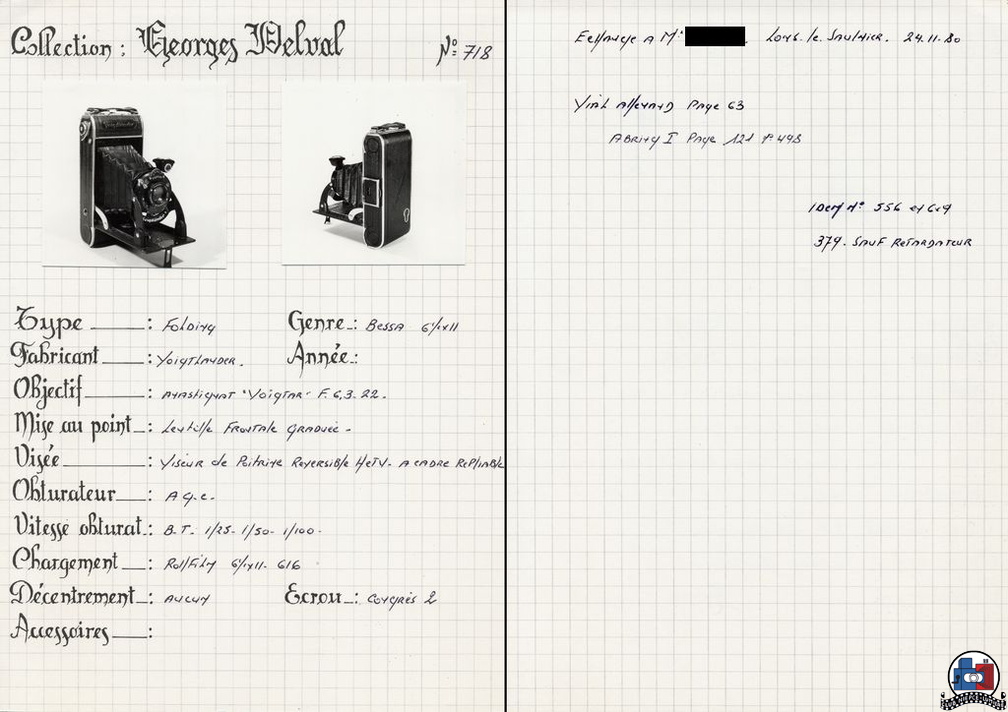 Collection : Georges Delval N° 718
Type : Folding Genre : Bessa 6½x11
Fabricant : Voigtlander. Année :
Objectif : Anastigmat "Voigtar" F. 6,3-22.
Mise au point : Lentille Frontale graduée -
Visée : Viseur de Poitrine Reversible HetV. A cadre Repliable
Obturateur : A G.C.
Vitesse obturat. : B.T. 1/25- 1/50- 1/100-
Chargement : RollFilm 6½x11- 616
Décentrement : Aucun Ecrou : Congrès 2
Accessoires :
Echange A Mr . Lons. le. Saulnier. 24.11.80
Vial Allemand Page 63
Abring I Page 121 N° 498
Idem N° 556 et
379. Sauf Retardateur